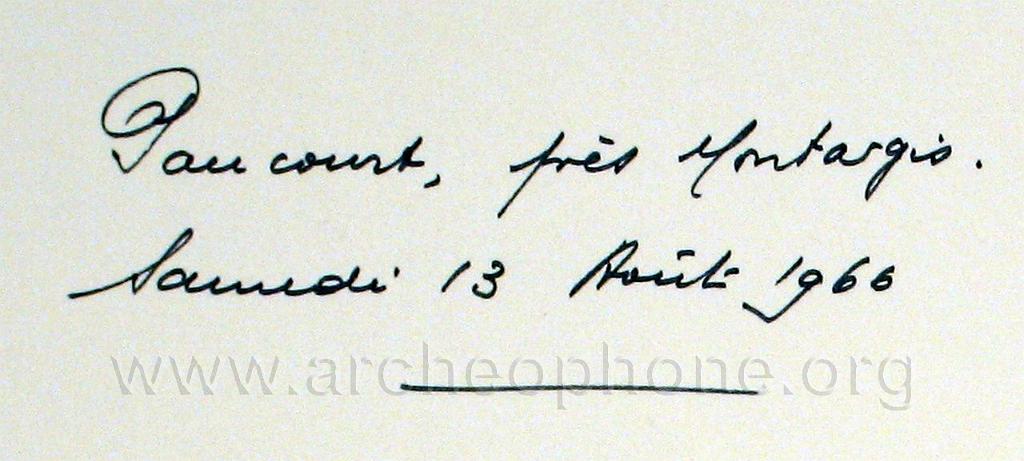 Paucourt, près Montargis.
Samedi 13 Août 1966
www.archeophone.org